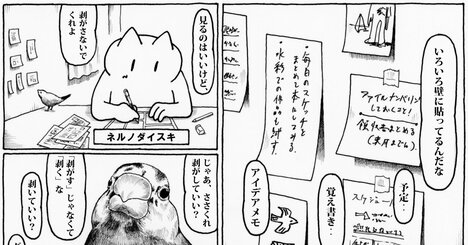 いろいろ壁に貼ってるんだな
ファイルナンバリング
しておくこと!
領収書まとめる
(来月までに)
予定‥
スケジュール
覚え書き‥
・毎日のスケッチを
まとめて本にしあげる。
・水彩での作品も試す。
アイデアメモ
見るのはいいけど、
剥がさないで
くれよ
ネルノダイスキ
じゃあ、ささくれ
剥がしていい?
「剥がす」じゃなくて
「剥く」な
剥いていい?